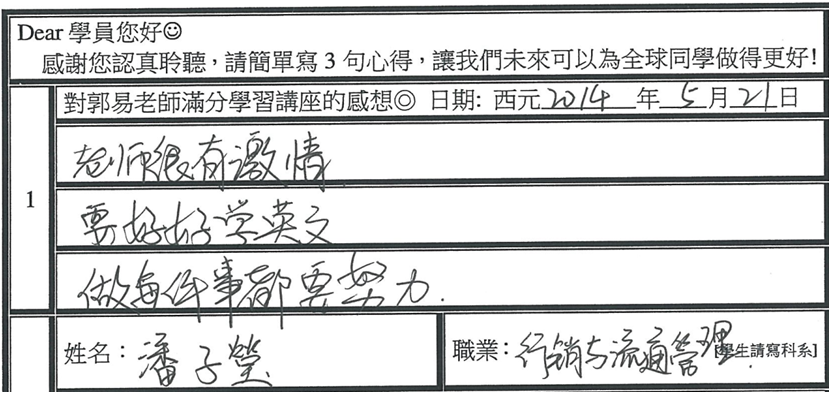 Dear 學員您好☺
感謝您認真聆聽，請簡單寫 3 句心得，讓我們未來可以為全球同學做得更好!
對郭易老師滿分學習講座的感想◎ 日期: 西元 2014 年 5 月 21 日
1
老师很有激情
要好好学英文
做每件事都要努力.
姓名：潘子瑩
職業：行銷与流通管理 [學生請寫科系]